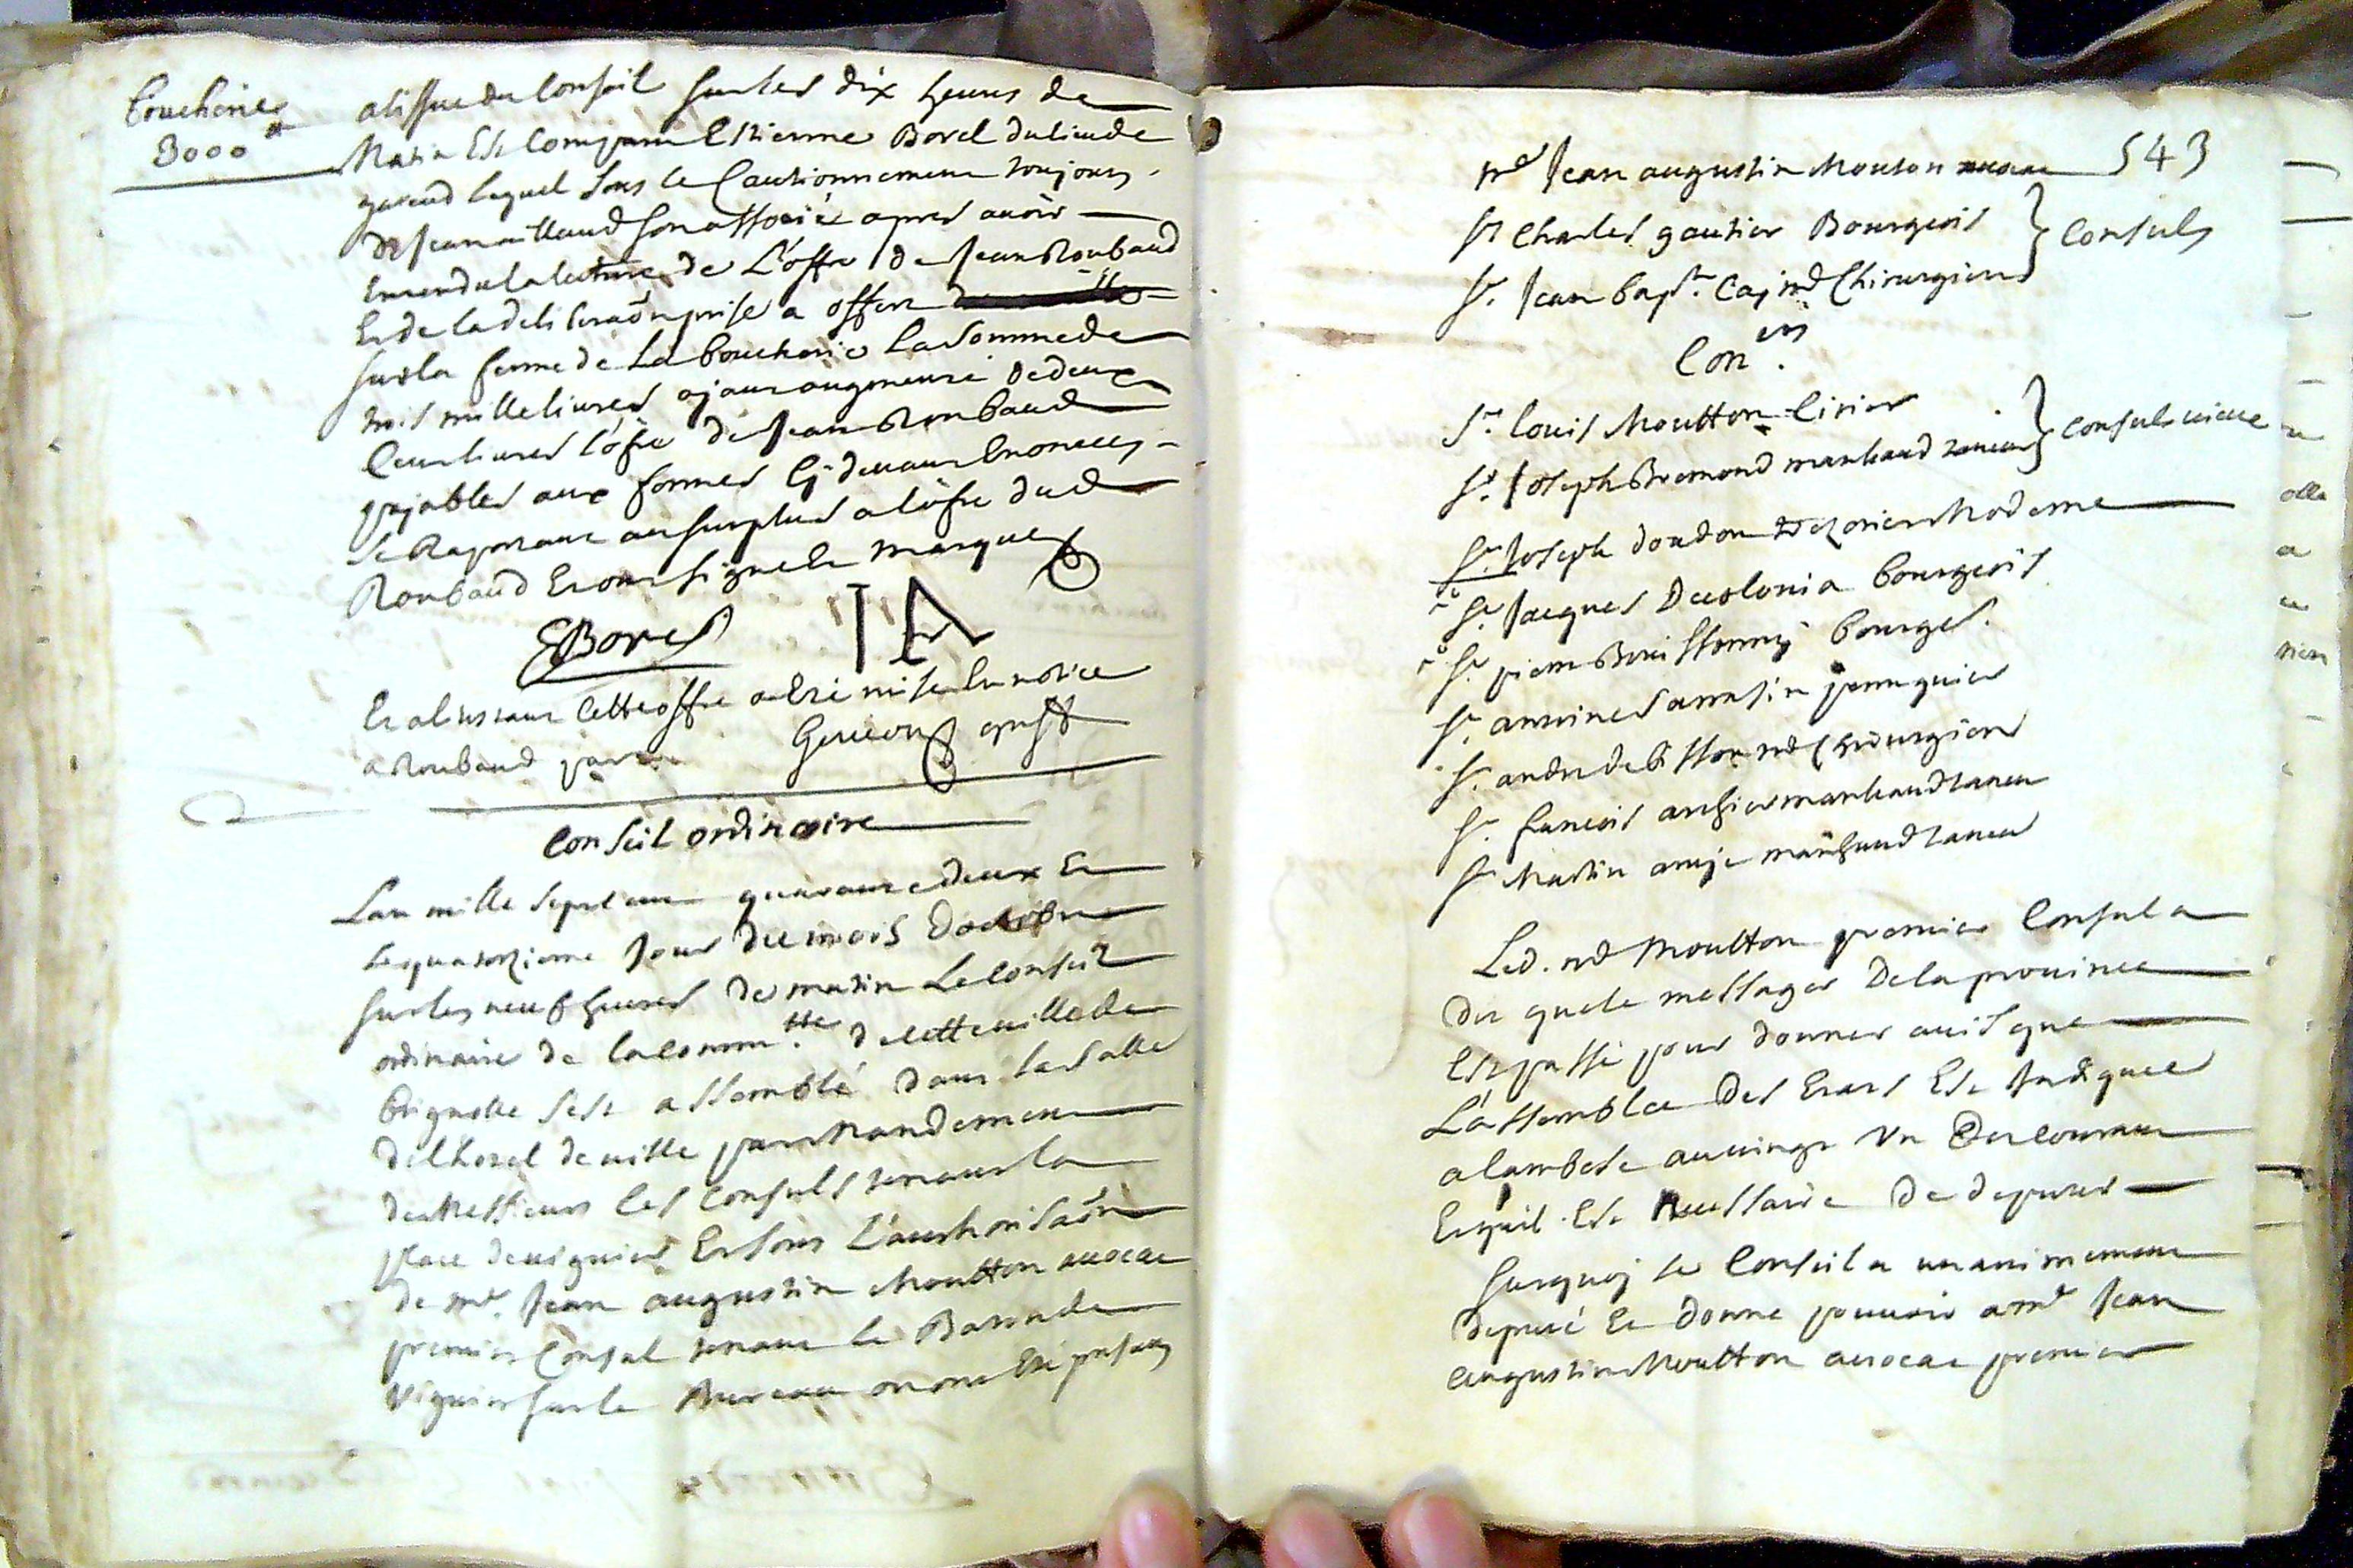 Boucherie
3000 #
a lissue du Conseil sur les dix heures de
Matin Est Comparu Estienne Borel du lieu de
gareoud lequel sous le Cautionnement toujours
de Jean aillaud son assossié apres avoir
Entendu la lecture de L'offre de Jean Roubaud
Et de la deliberaon prise a offert
sur la ferme de La boucherie La somme de
trois mille livres ajant augmenté de deux
Cent livres l'ofre de Jean Roubaud
pajables aux formes Cj devant Enoncees
se Raportant au surplus a l'ofre dud
Roubaud Et ont signe Et marque
EBorel IA
Et a linstant Cette offre a Esté mise En notice
a Roubaud par
greff
Conseil ordinaire
Lan mille sept cent quarante deux Et
le quatorzieme Jour du mois D'octobre
sur les neuf heures de matin Le Conseil
ordinaire de la comm.tte de cette ville de
brignolle s'est assemblé dans la salle
de l'hotel de ville par Mandement
de Messieurs les Consuls tenant la
place de viguier Et sous L'authorisaon
de me. Jean augustin Moutton avocat
premier Consul tenant le Baton de
Viguier sur le Bureau ou ont Esté presents
543
me Jean augustin Mouton avocat
sr Charles gautier Bourgeois
sr. Jean bapt. Caj me Chirurgien
Consuls
Con.ers
sr. louis Moutton Cirier
sr. Joseph Bremond marchand taneur
Consuls vieux
sr. Joseph doudon trezorier Moderne
sr. Jacques Decolonia bourgeois
sr. pierre bourges.
sr. antoine sarrasin perruquier
sr. andre me Chirurgien
sr. francois marchand taneur
sr Martin marchand taneur
Led. me Moutton premier Consul a
dit que le messager de la province
Est passé pour donner avis que
L'assemblee des Etats Est Indiquee
a lambesc au vingt Un du courant
Et qu'il Est Necessaire de deputer
sur quoj le Conseil a unanimement
deputé Et donne pouvoir a me Jean
augustin Moutton avocat premier